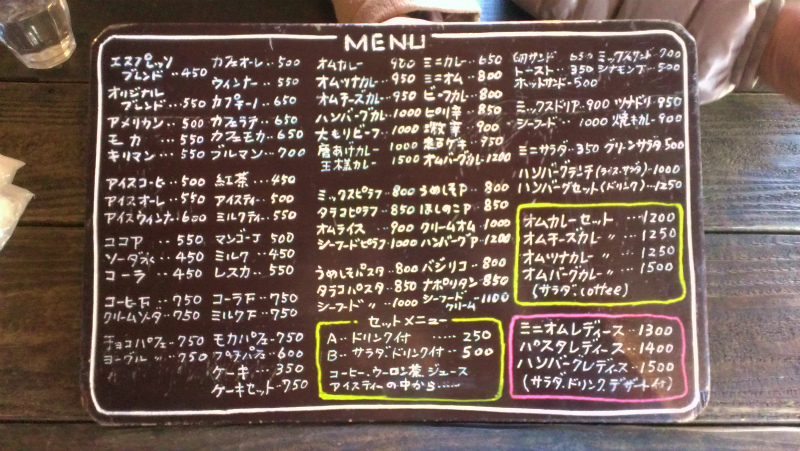 MENU
エスプレッソ
ブレンド ‥450
オリジナル
ブレンド ‥550
アメリカン ‥500
モカ ‥550
キリマン ‥550
アイスコーヒ‥500
アイスオーレ‥550
アイスウィンナ‥600
ココア 550
ソーダ水 ‥450
コーラ ‥450
コーヒーF ‥750
クリームソーダ‥750
チョコパフェ‥750
ヨーグル 〃 ‥750
カフェオーレ‥500
ウィンナー ‥550
カプチーノ ‥650
カフェラテ ‥650
カフェモカ ‥650
ブルマン ‥700
紅茶 ‥450
アイスティ‥500
ミルクティ‥550
マンゴーJ 500
ミルク ‥450
レスカ ‥550
コーラF‥750
ミルクF‥750
モカパフェ‥750
プチパフェ‥600
ケーキ ‥350
ケーキセット‥750
オムカレー 900
オムツナカレ‥950
オムチーズカレ‥950
ハンバーグカレ‥1000
大もりビーフ‥1000
唐あげカレー 1000
王様カレー 1500
ミックスピラフ‥800
タラコピラフ‥850
オムライス ‥900
シーフードピラフ‥1000
うめしそパスタ‥800
タラコパスタ‥850
シーフード 〃 ‥1000
ミニカレー‥650
ミニオム ‥800
ビーフカレ‥800
ピリ辛 ‥850
激辛 ‥900
オムバーグカレ‥1200
うめしそP‥800
ほしのこP‥850
クリームオム‥1000
ハンバーグP‥1200
バジリコ ‥800
ナポリタン‥850
シーフード
クリーム ‥1100
セットメニュー
A‥ドリンク付 ‥‥250
B‥サラダ、ドリンク付‥500
コーヒー、ウーロン茶、ジュース
アイスティーの中から‥‥
ミックスサンド‥700
トースト‥350 シナモンT‥500
ホットサンド‥500
ミックスドリア‥900 ツナドリ‥950
シーフード ‥1000 焼きカレ‥900
ミニサラダ‥350 グリーンサラダ500
ハンバーグランチ(ライス・サラダ)‥1000
ハンバーグセット(ドリンク)‥1250
オムカレーセット ‥1200
オムチーズカレー 〃 ‥1250
オムツナカレー 〃 ‥1250
オムバーグカレー 〃 ‥1500
(サラダ、coffee)
ミニオムレディース‥1300
パスタレディース‥1400
ハンバーグレディース‥1500
(サラダ、ドリンク、デザート付)